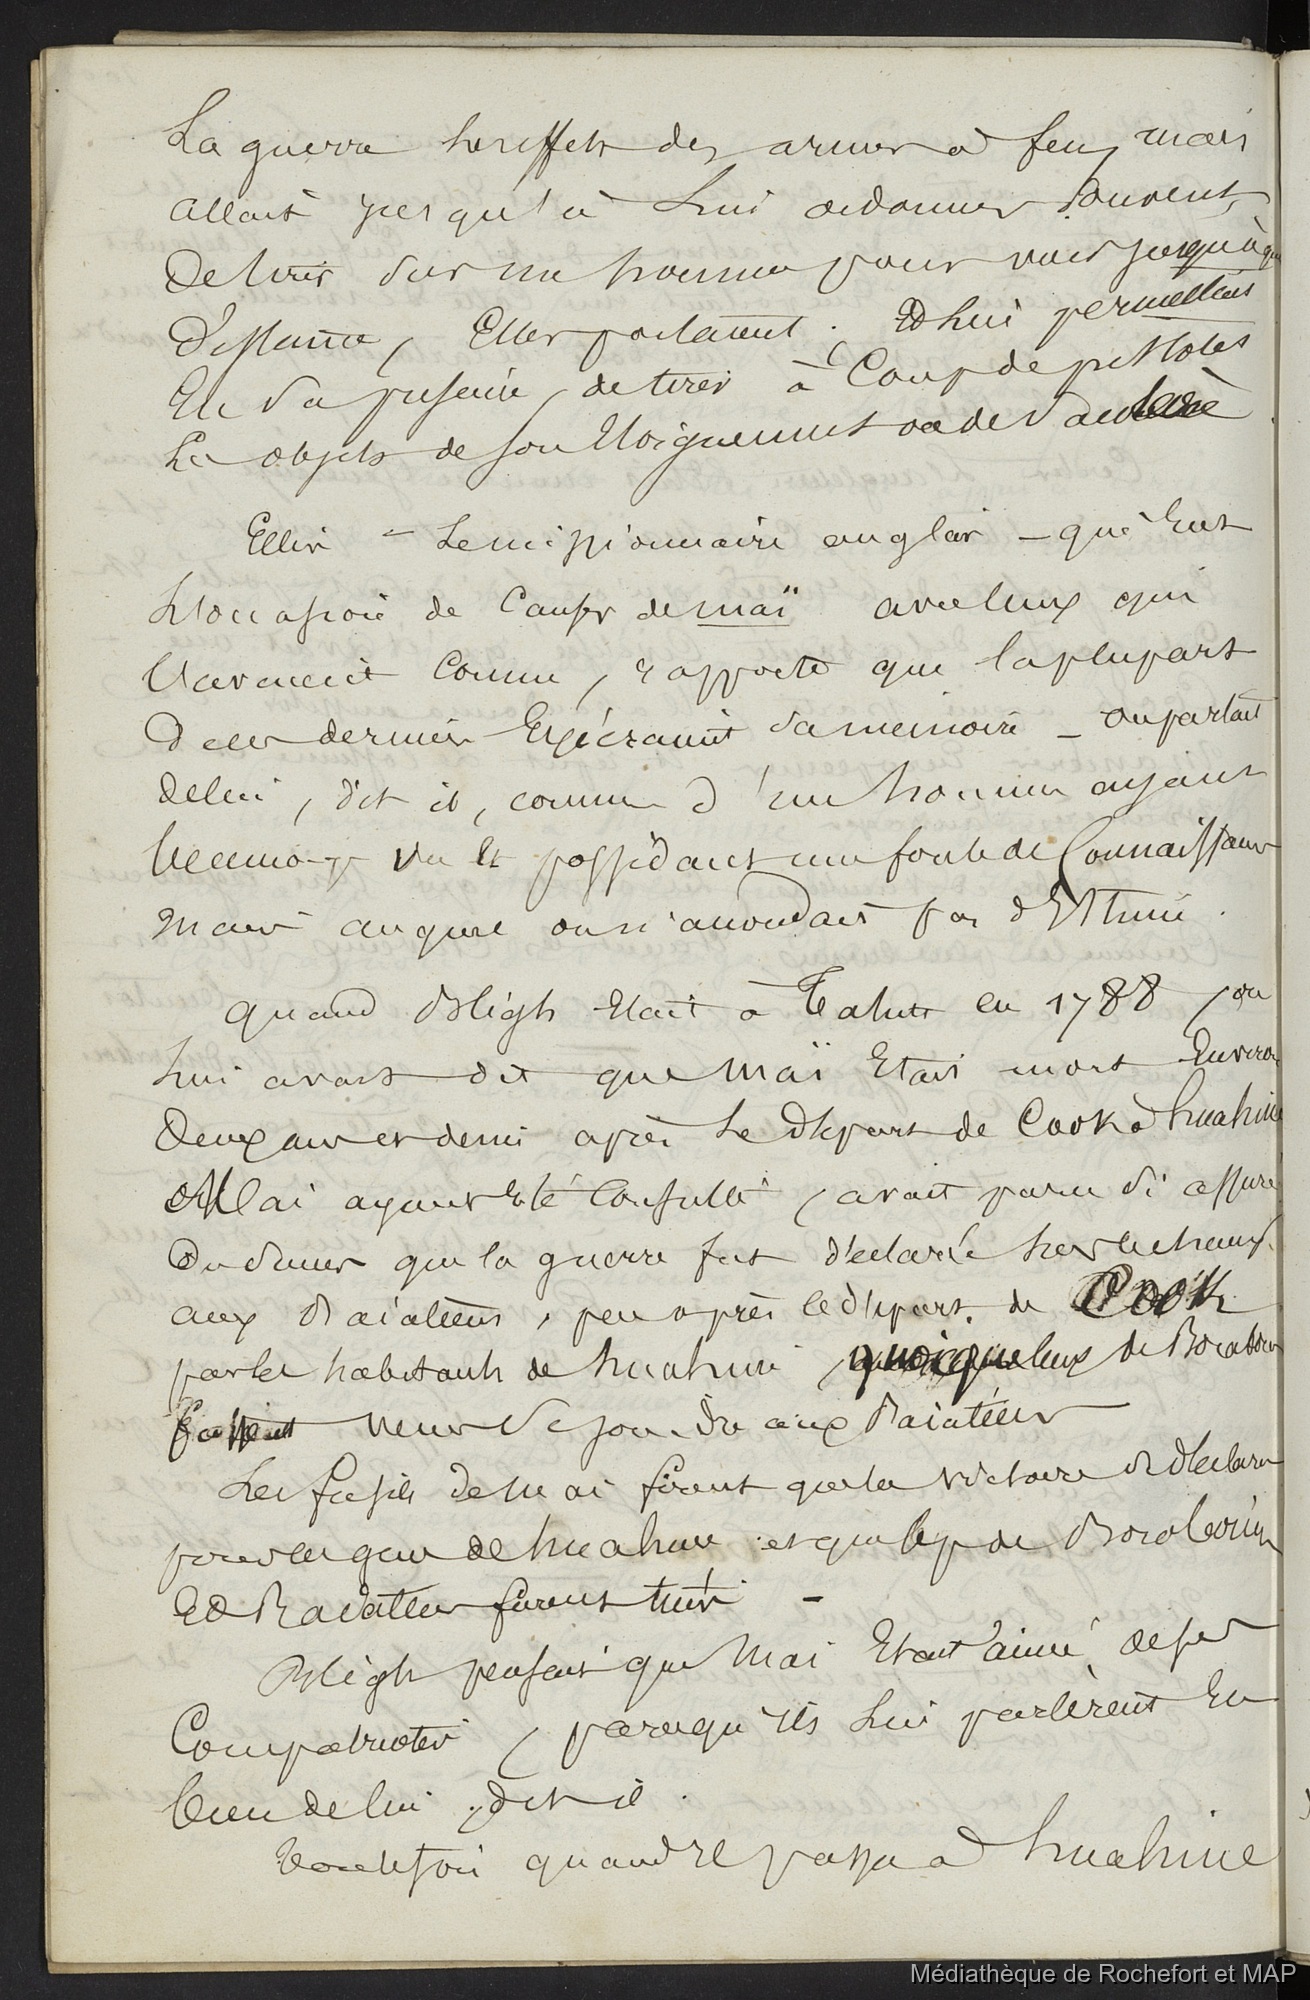 La guerre les effets des armes à feu, mais
allait jusqu'à lui ordonner souvent
de tirer sur un homme pour voir jusqu'à q
distance, Elles portaient. Et lui permettait
En sa présence, de tirer à Coup de pistolets
Les objets de son Eloignement ou de sa
Ellis - Le missionnaire anglais - qui Eut
L'occasion de Causer de maï avec ceux qui
l'avaient Connu, rapporte que la plupart
de ces derniers Exécraient sa mémoire - on parlait
de lui, dit il, comme d'un homme ayant
beaucoup vu Et possédant une foule de Connaissances
mais auquel on n'accordait pas d'Estime.
quand Bligh Etait à Tahiti en 1788, on
Lui avait dit que Maï Etait mort Environ
deux ans et demi après Le départ de Cook d'huahine
Maï ayant Eté Consulté, avait paru si assuré
du succès que la guerre fut déclarée
aux Raiatéens, peu après le départ de Cook
par les habitants de huahine, quoique ceux de Borabora
fussent venus se joindre aux Raiatéens
Les fusils de Mai firent que la victoire se déclara
pour les gens de huahine et que bcp de Borabora
Et Raiatéens furent tués -
Bligh pensait que Mai Etait aimé de ses
Compatriotes, parcequ'ils lui parlèrent En
bien de lui, dit il.
Toutefois quand Il passa à huahine
Médiathèque de Rochefort et MAP